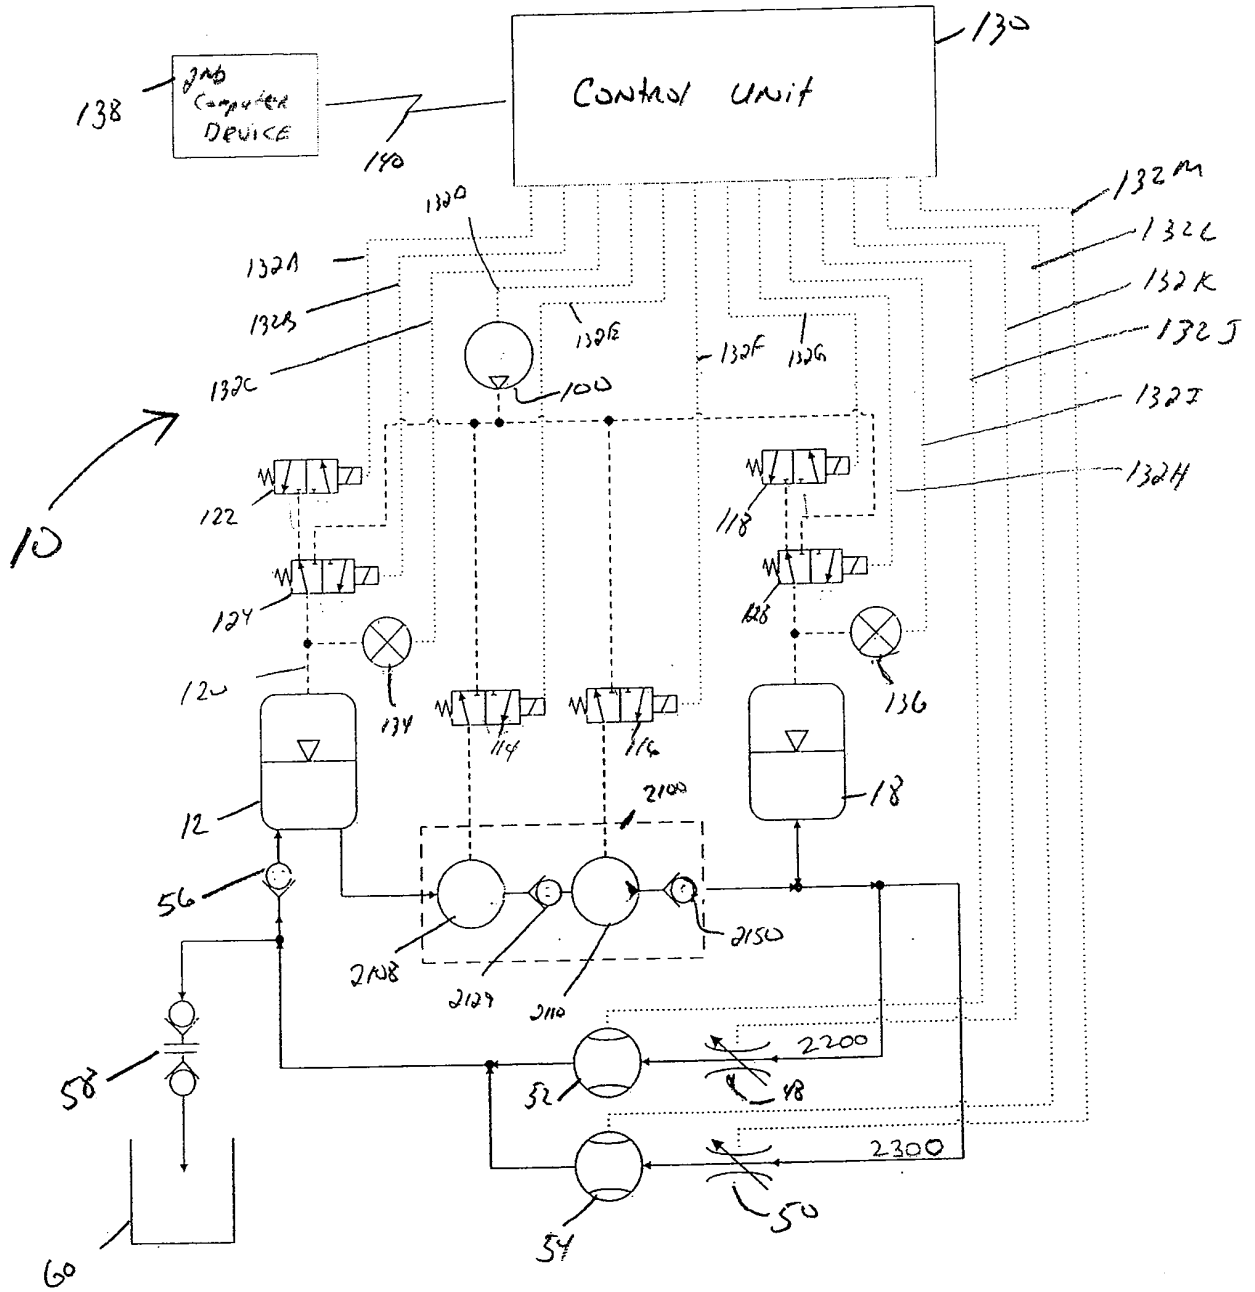 130
Control Unit
2nd
Computer
DEVICE
138
140
132M
132D
132L
132A
132K
132B
132E
132F
132G
132J
132C
100
132I
10
132H
122
118
124
128
120
134
136
114
116
2100
12
18
56
2108
2129
2110
2150
58
52
2200
48
2300
54
50
60